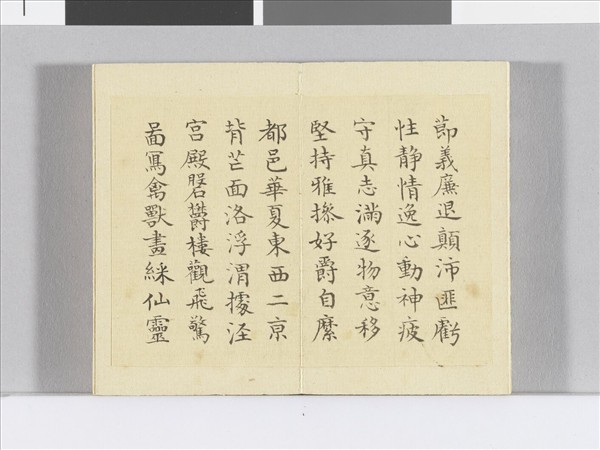 節義廉退顛沛匪虧
性静情逸心動神疲
守真志滿逐物意移
堅持雅操好爵自縻
都邑華夏東西二京
背芒面洛浮渭據泾
宫殿磐欝楼觀飛驚
啚寫禽獸畫綵仙靈